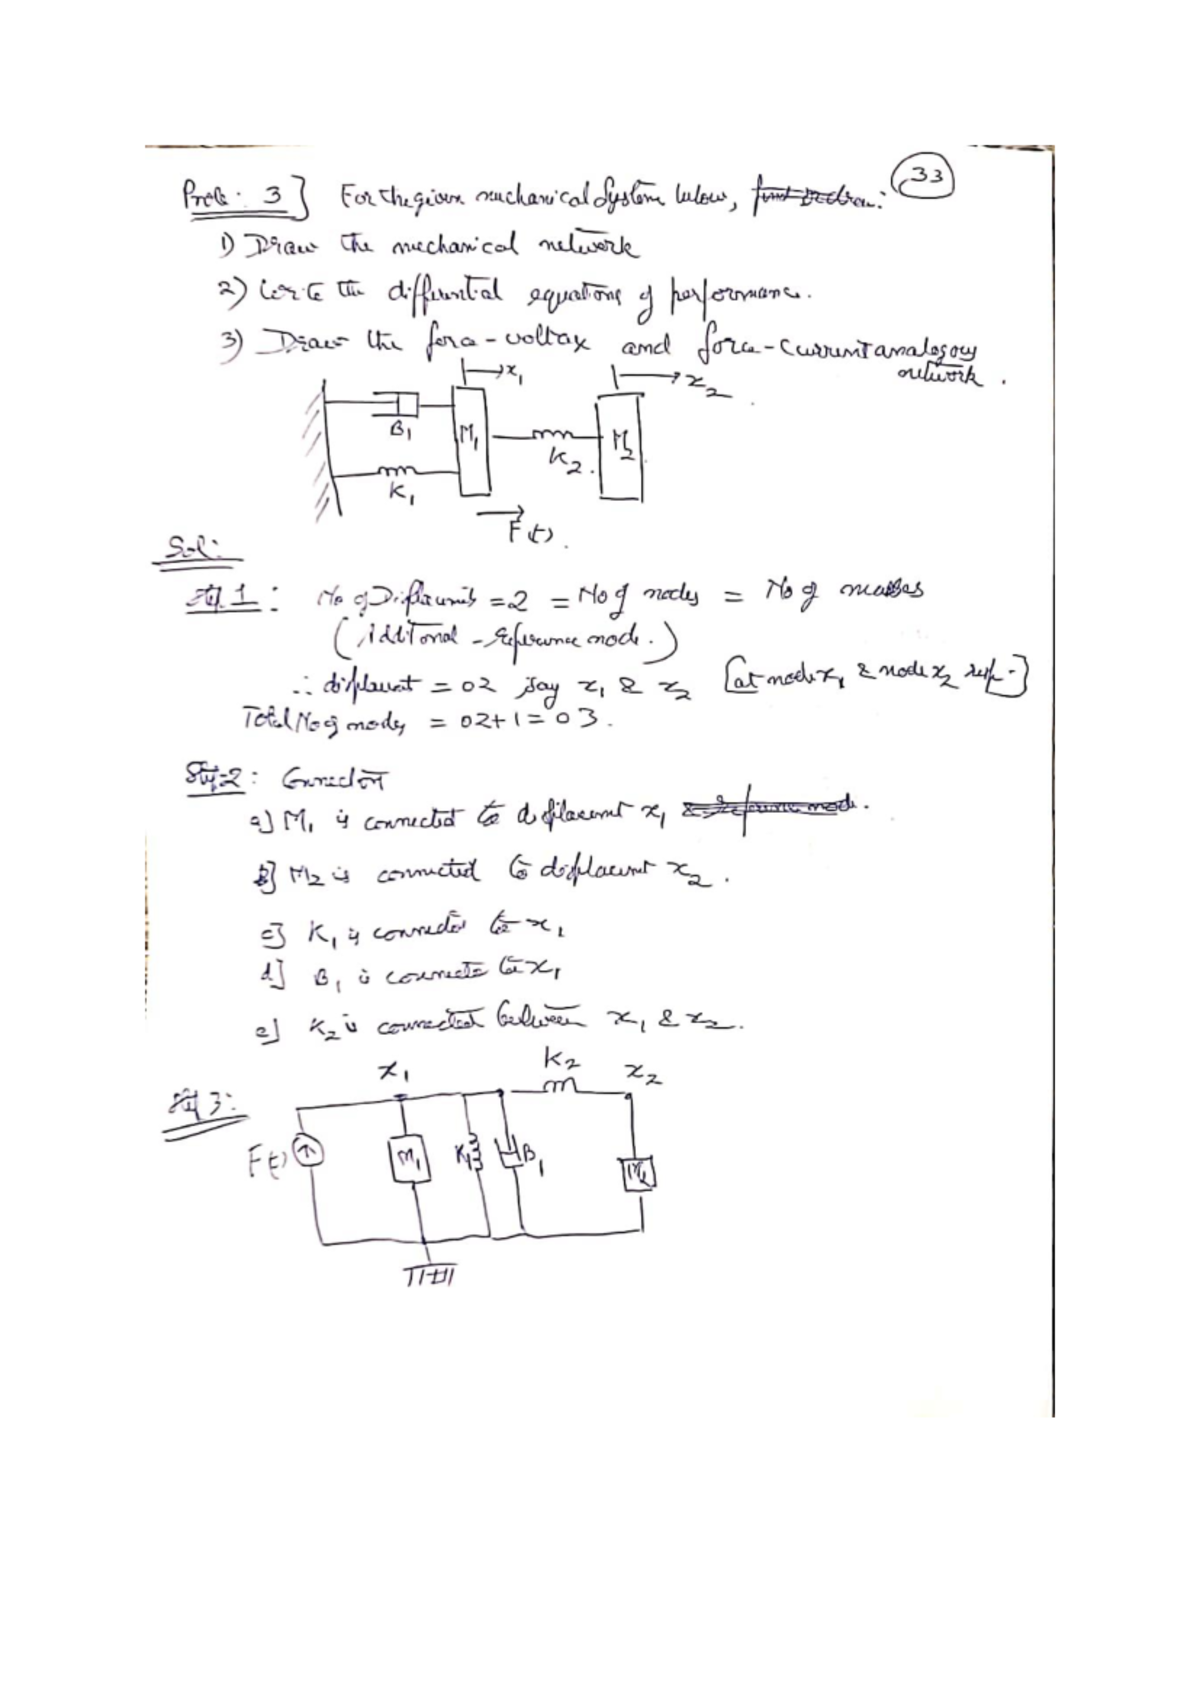 33
Prob: 3] For the given mechanical System below,
1) Draw the mechanical network
2) Write the differential equations of performance.
3) Draw the force-voltage and force-current analogous
network.
x1
x2
B1
M1
K2
M2
K1
F(t).
Sol:
Step 1: No of Displacements = 2 = No of nodes = No of masses
(Additional - reference node.)
∴ displacement = 02 say x1 & x2 [at node x1 & node x2 resp.]
Total No of nodes = 02+1=03.
Step-2: Connection
a] M1 is connected to displacement x1 & reference node.
b] M2 is connected to displacement x2.
c] K1 is connected to x1
d] B1 is connected to x1
e] K2 is connected between x1 & x2.
Step 3:
x1
K2
x2
F(t)
M1
K1
B1
M2